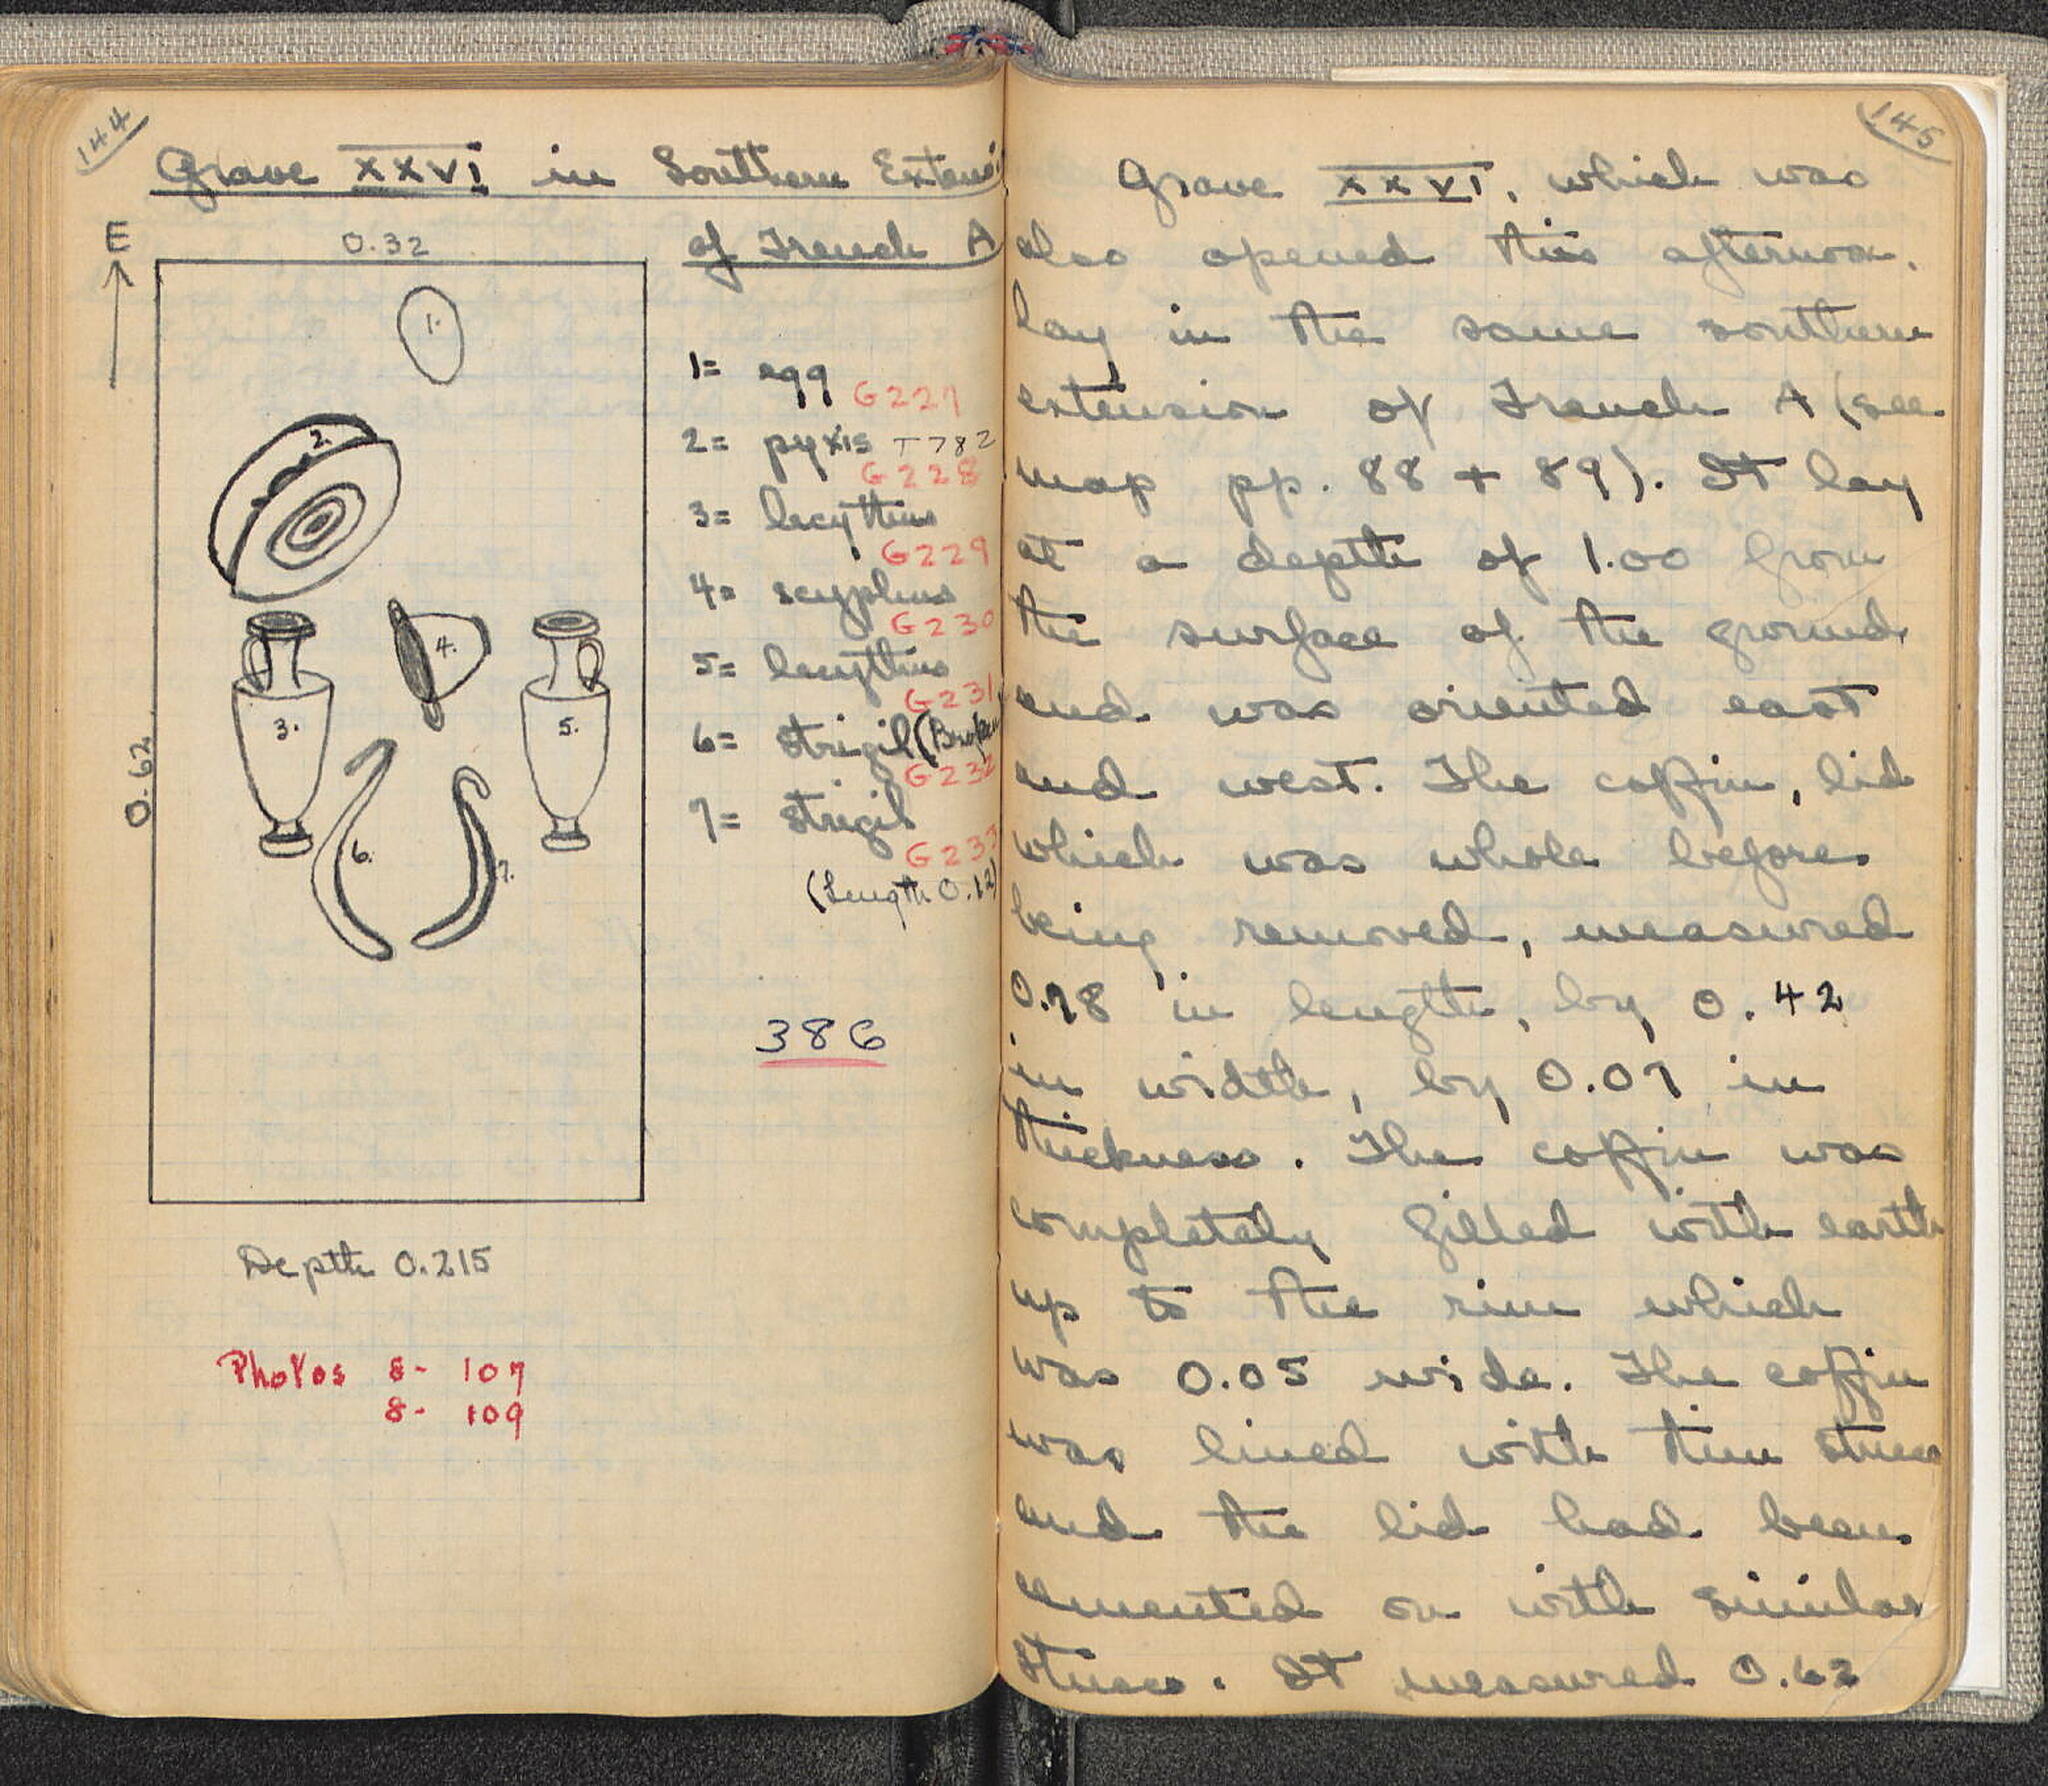 144
Grave XXVI in Southern Extensi
of Trench A
E
0.32
0.62
1.
2.
3.
4.
5.
6.
7.
1= egg G227
2= pyxis T782
G228
3= lecythus
G229
4= scyphus
G230
5= lecythus
G231
6= strigil (Broken
G232
7= strigil
G233
(Length 0.12)
386
Depth 0.215
Photos 8- 107
8- 109
145
Grave XXVI, which was
also opened this afternoon,
lay in the same southern
extension of Trench A (see
map pp. 88 + 89). It lay
at a depth of 1.00 from
the surface of the ground
and was oriented east
and west. The coffin, lid
which was whole before
being removed, measured
0.78 in length, by 0.42
in width, by 0.07 in
thickness. The coffin was
completely filled with earth
up to the rim which
was 0.05 wide. The coffin
was lined with thin stucco
and the lid had been
cemented on with similar
stucco. It measured 0.62